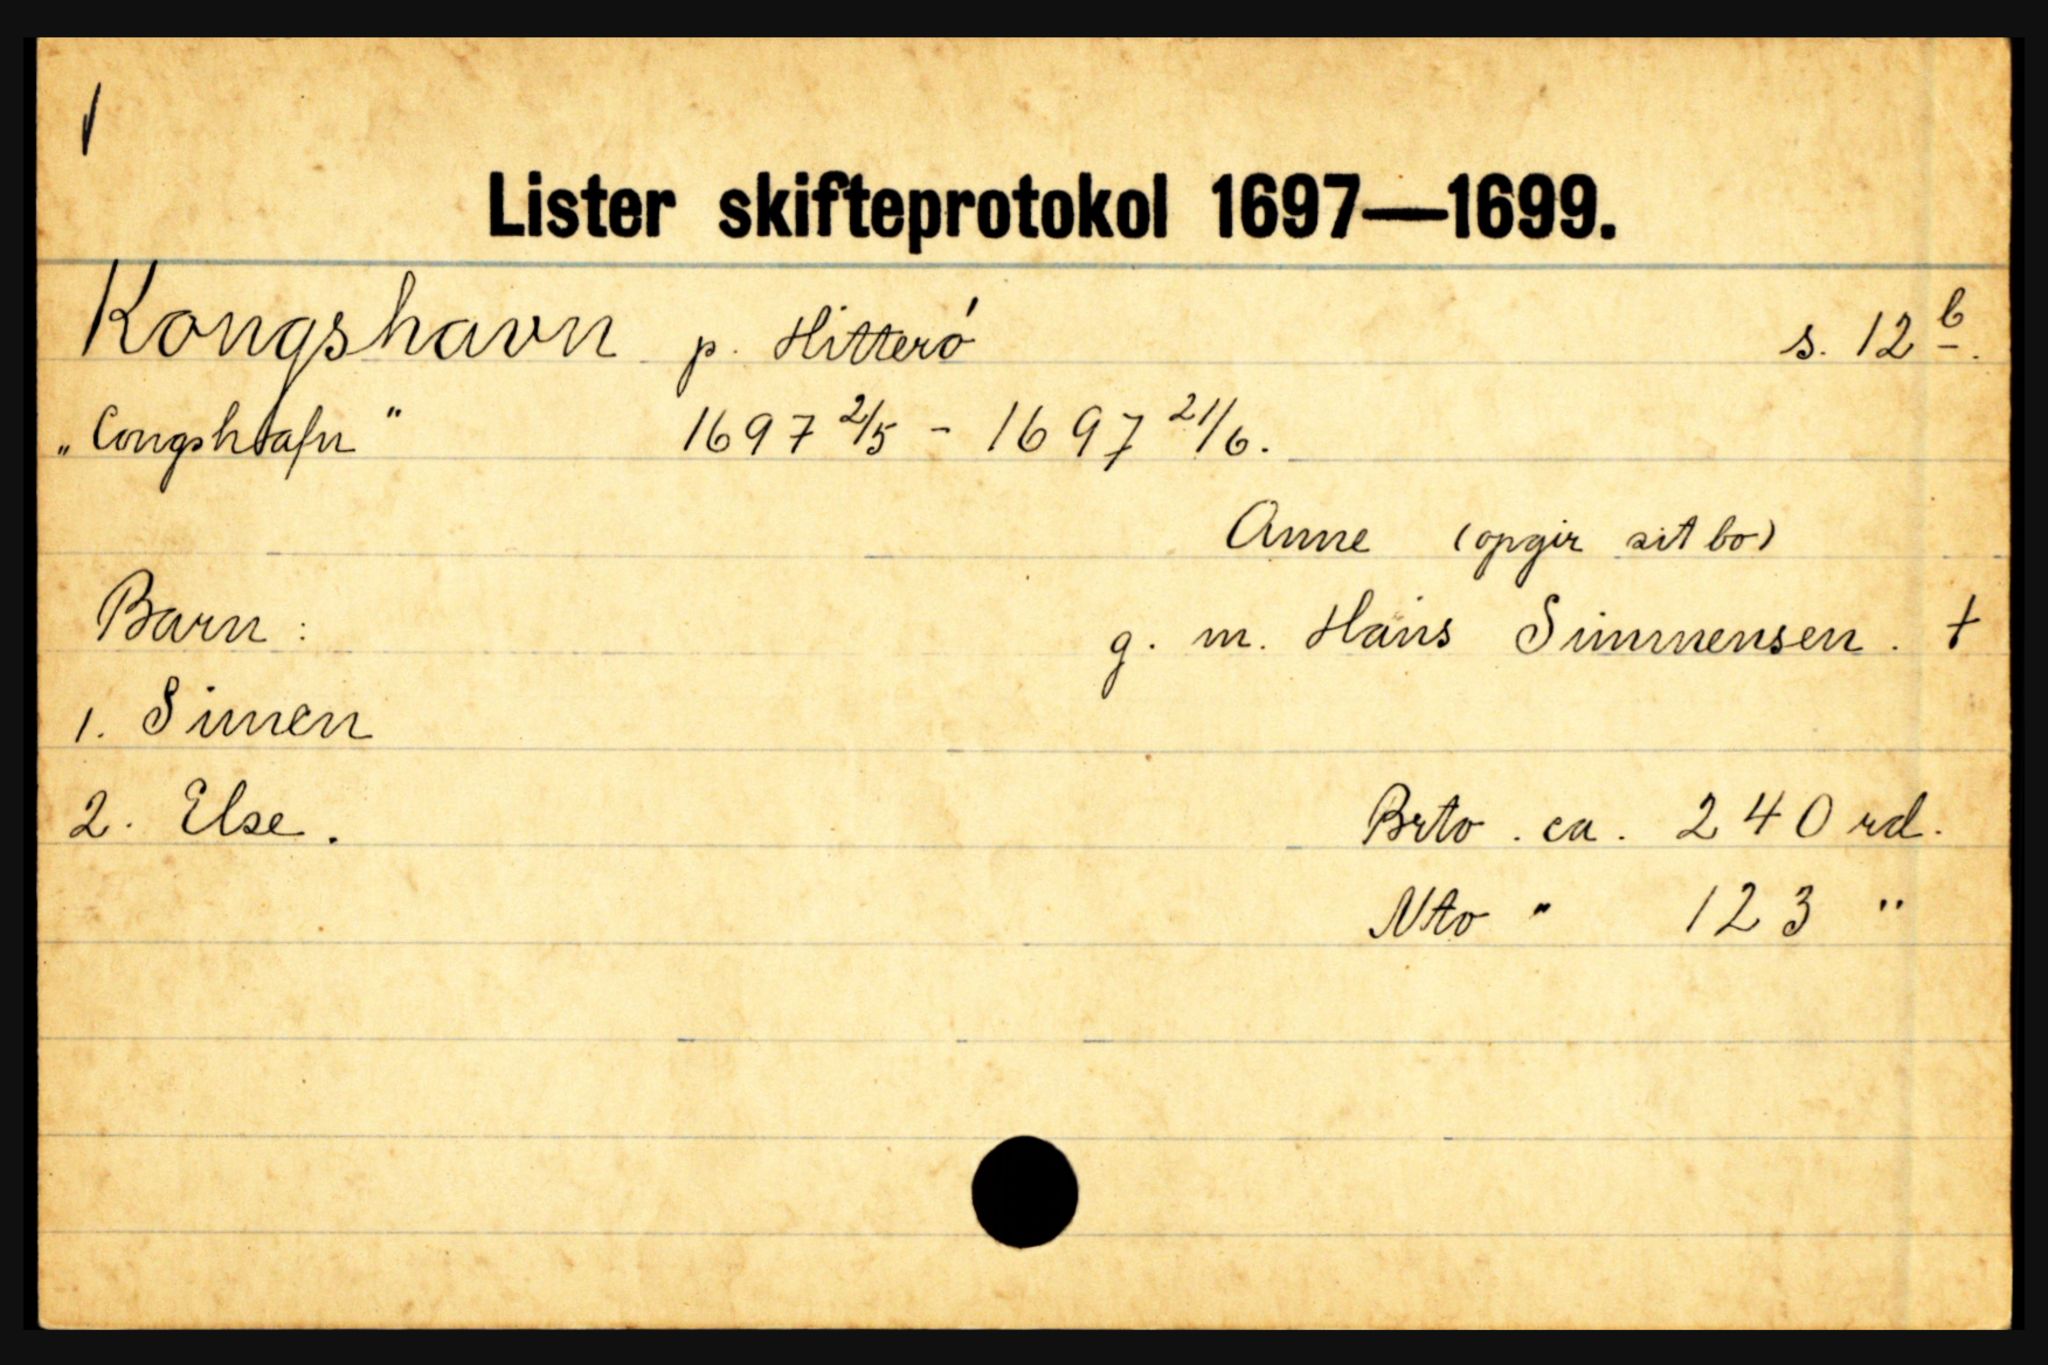 Lister skifteprotokol 1697—1699.
Kongshavn p. Hitterø s. 12 b.
„Congshafn" 1697 2/5 - 1697 21/6.
Anne (opgir sit bo)
Barn: g. m. Hans Simmensen. †
1. Simen
2. Else. Brto. ca. 240 rd.
Nto " 123 "